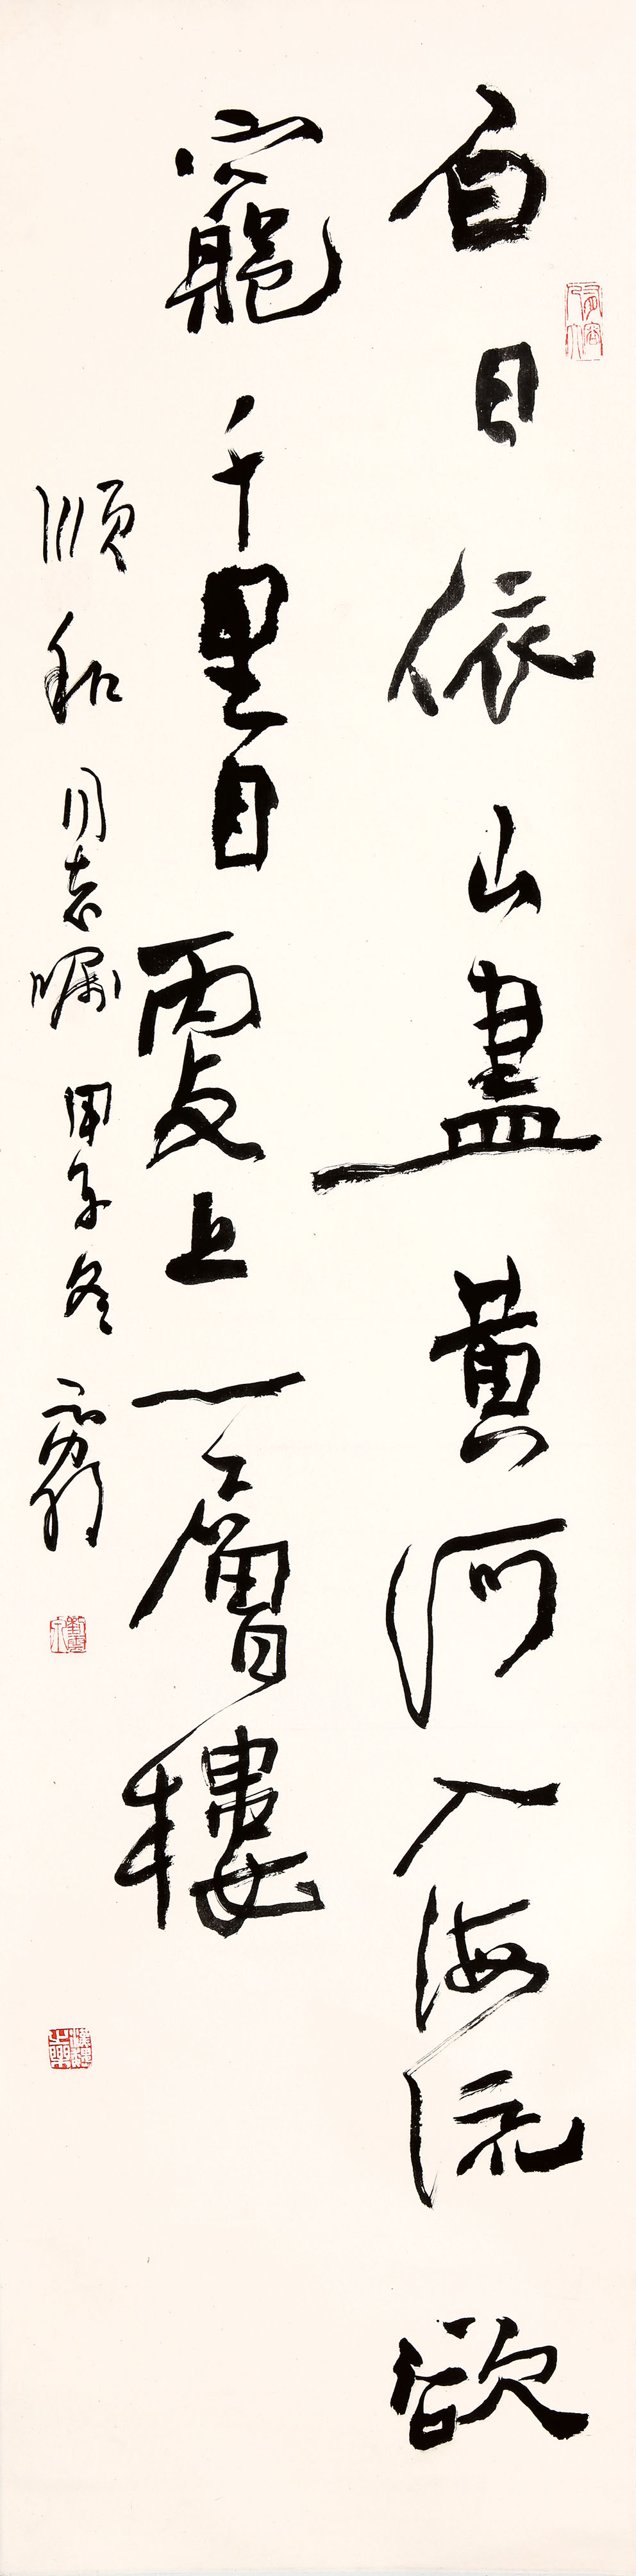 白日依山盡黃河入海流欲
竆千里目㪅上一層樓
順和同志嘱甲子冬